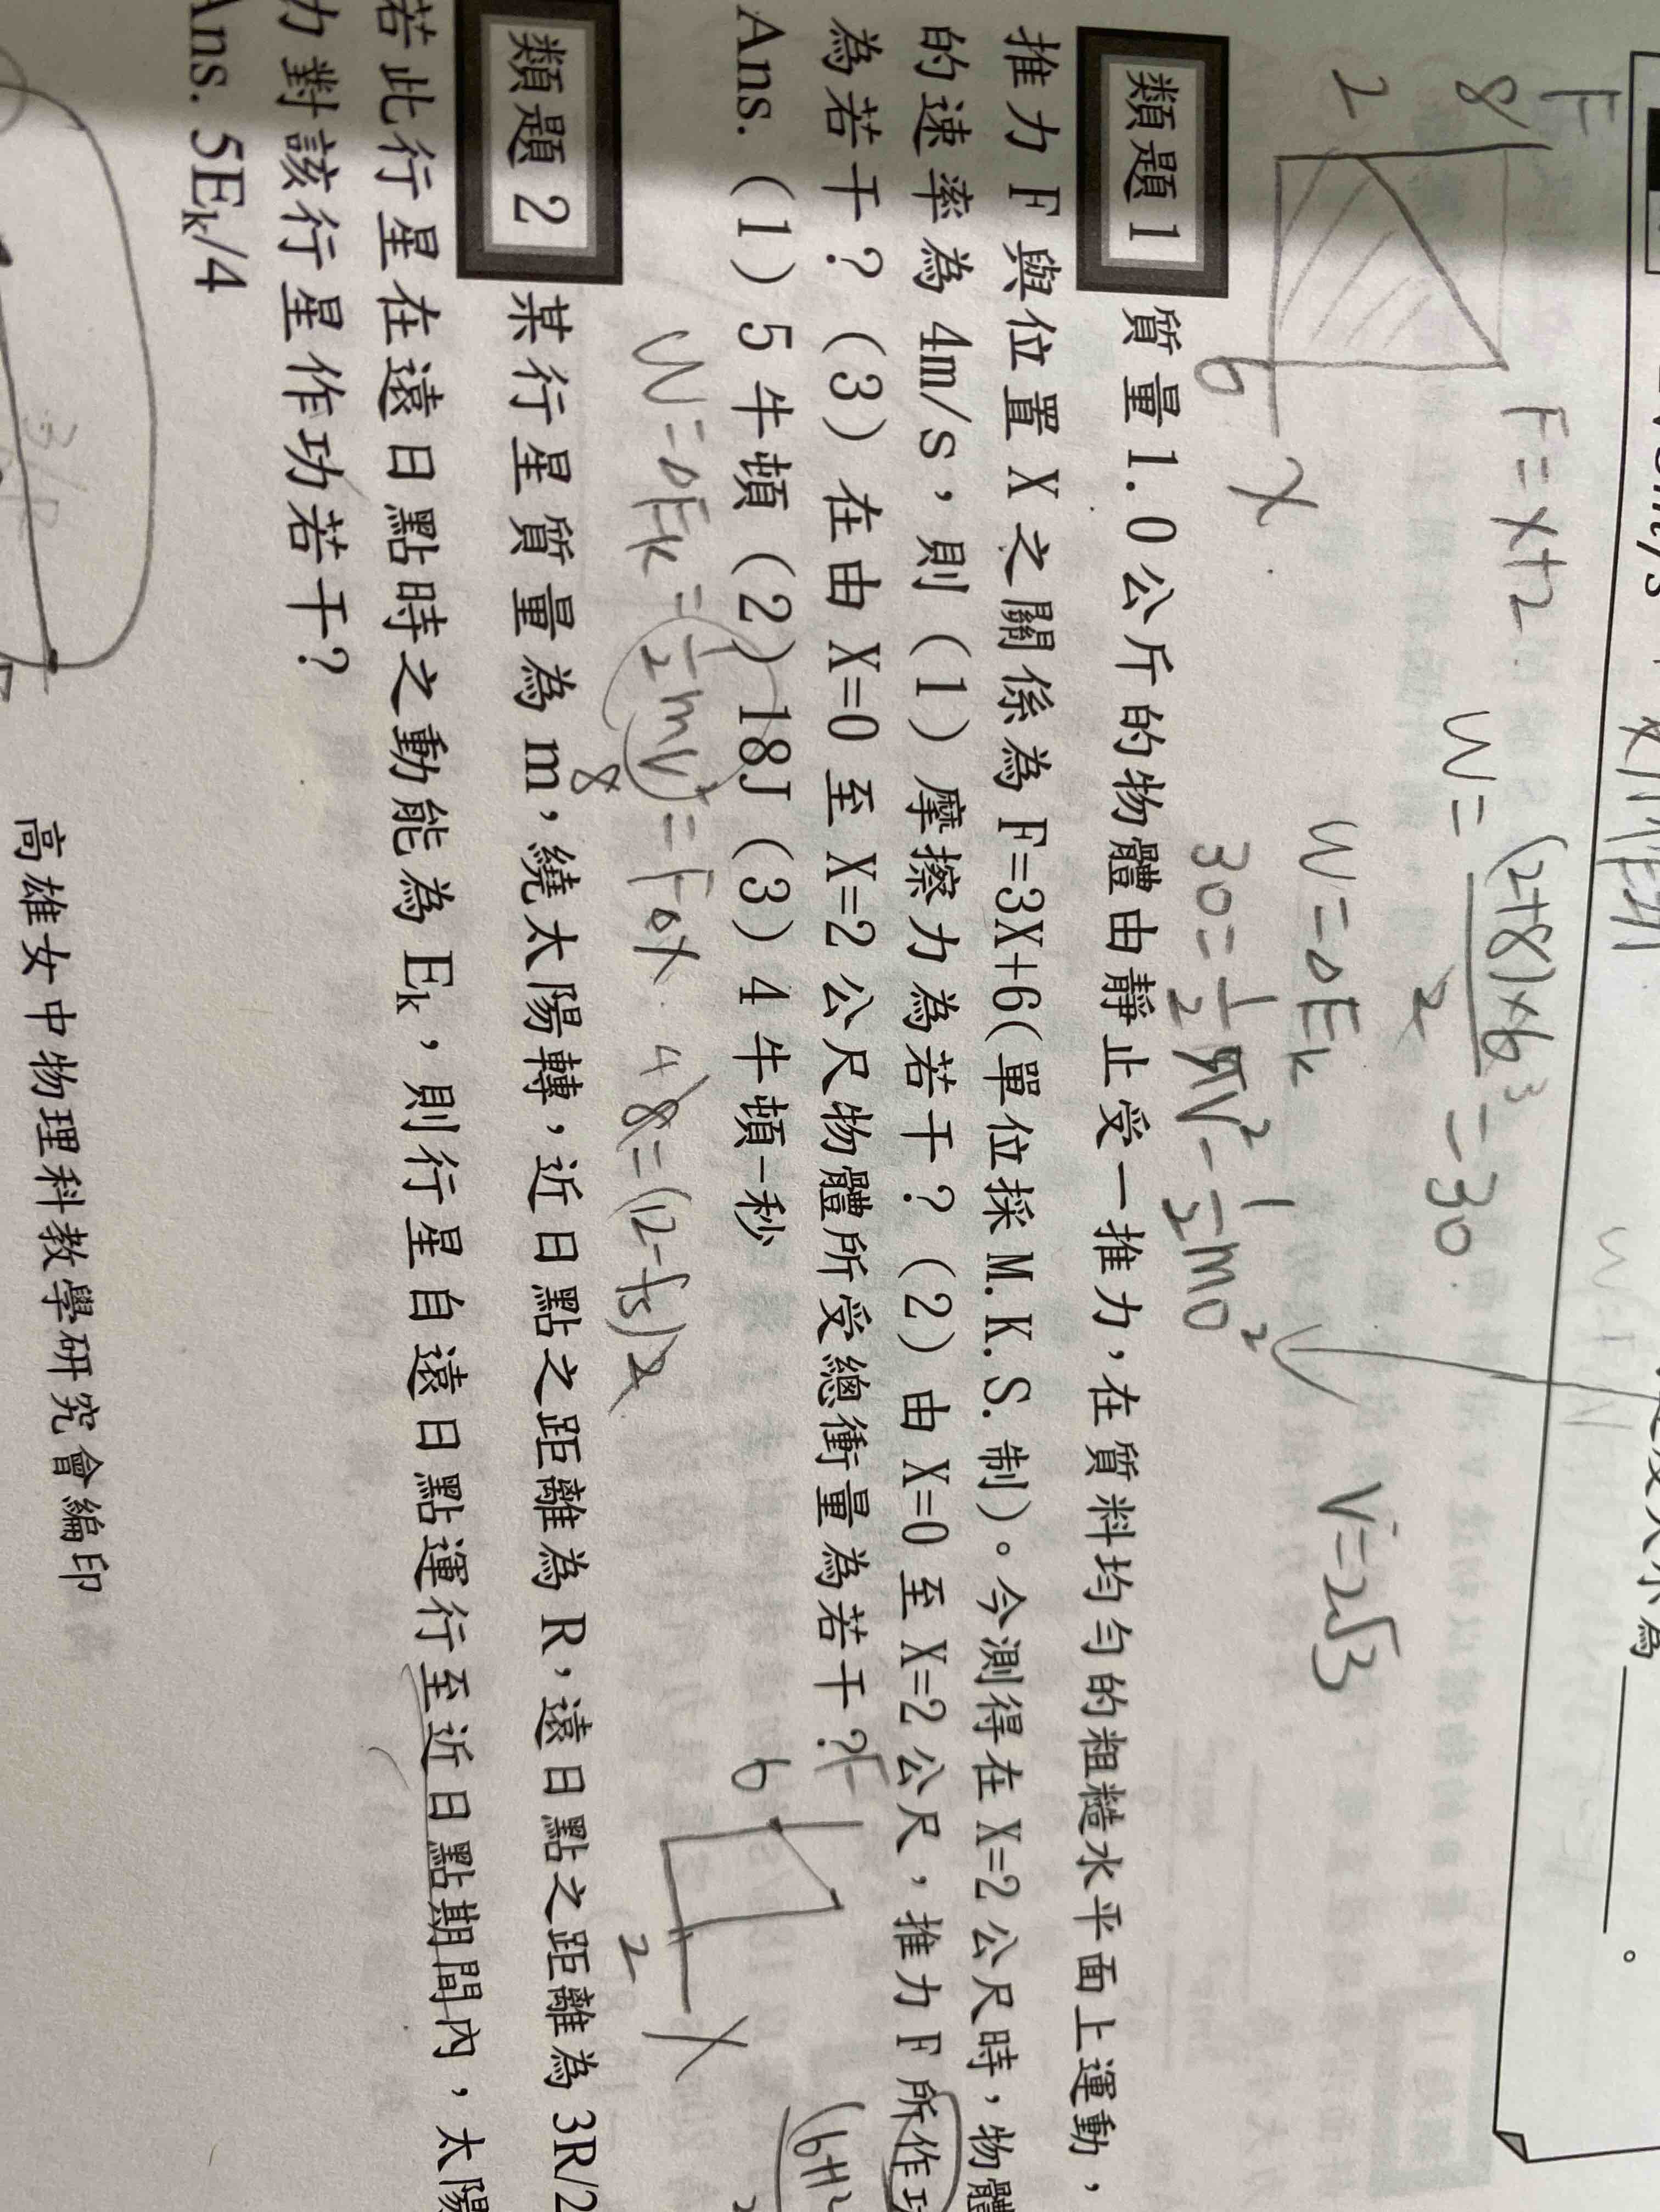 F
8
2
6
X
F=X+2
W=(2+8)×6/2=30
W=ΔEk
30=1/2mV²-1/2m0²
V=2√3
類題1 質量1.0公斤的物體由靜止受一推力,在質料均勻的粗糙水平面上運動,
推力F與位置X之關係為F=3X+6(單位採M.K.S.制)。今測得在X=2公尺時,物體
的速率為4m/s,則(1)摩擦力為若干?(2)由X=0至X=2公尺,推力F所作功
為若干?(3)在由X=0至X=2公尺物體所受總衝量為若干?
Ans.(1)5牛頓(2)18J(3)4牛頓-秒
W=ΔEk=1/2mV²=FΔX
8
4 8=(12-fs)2
F
6
2
X
類題2 某行星質量為m,繞太陽轉,近日點之距離為R,遠日點之距離為3R/2
若此行星在遠日點時之動能為Ek,則行星自遠日點運行至近日點期間內,太陽
力對該行星作功若干?
Ans. 5Ek/4
高雄女中物理科教學研究會編印